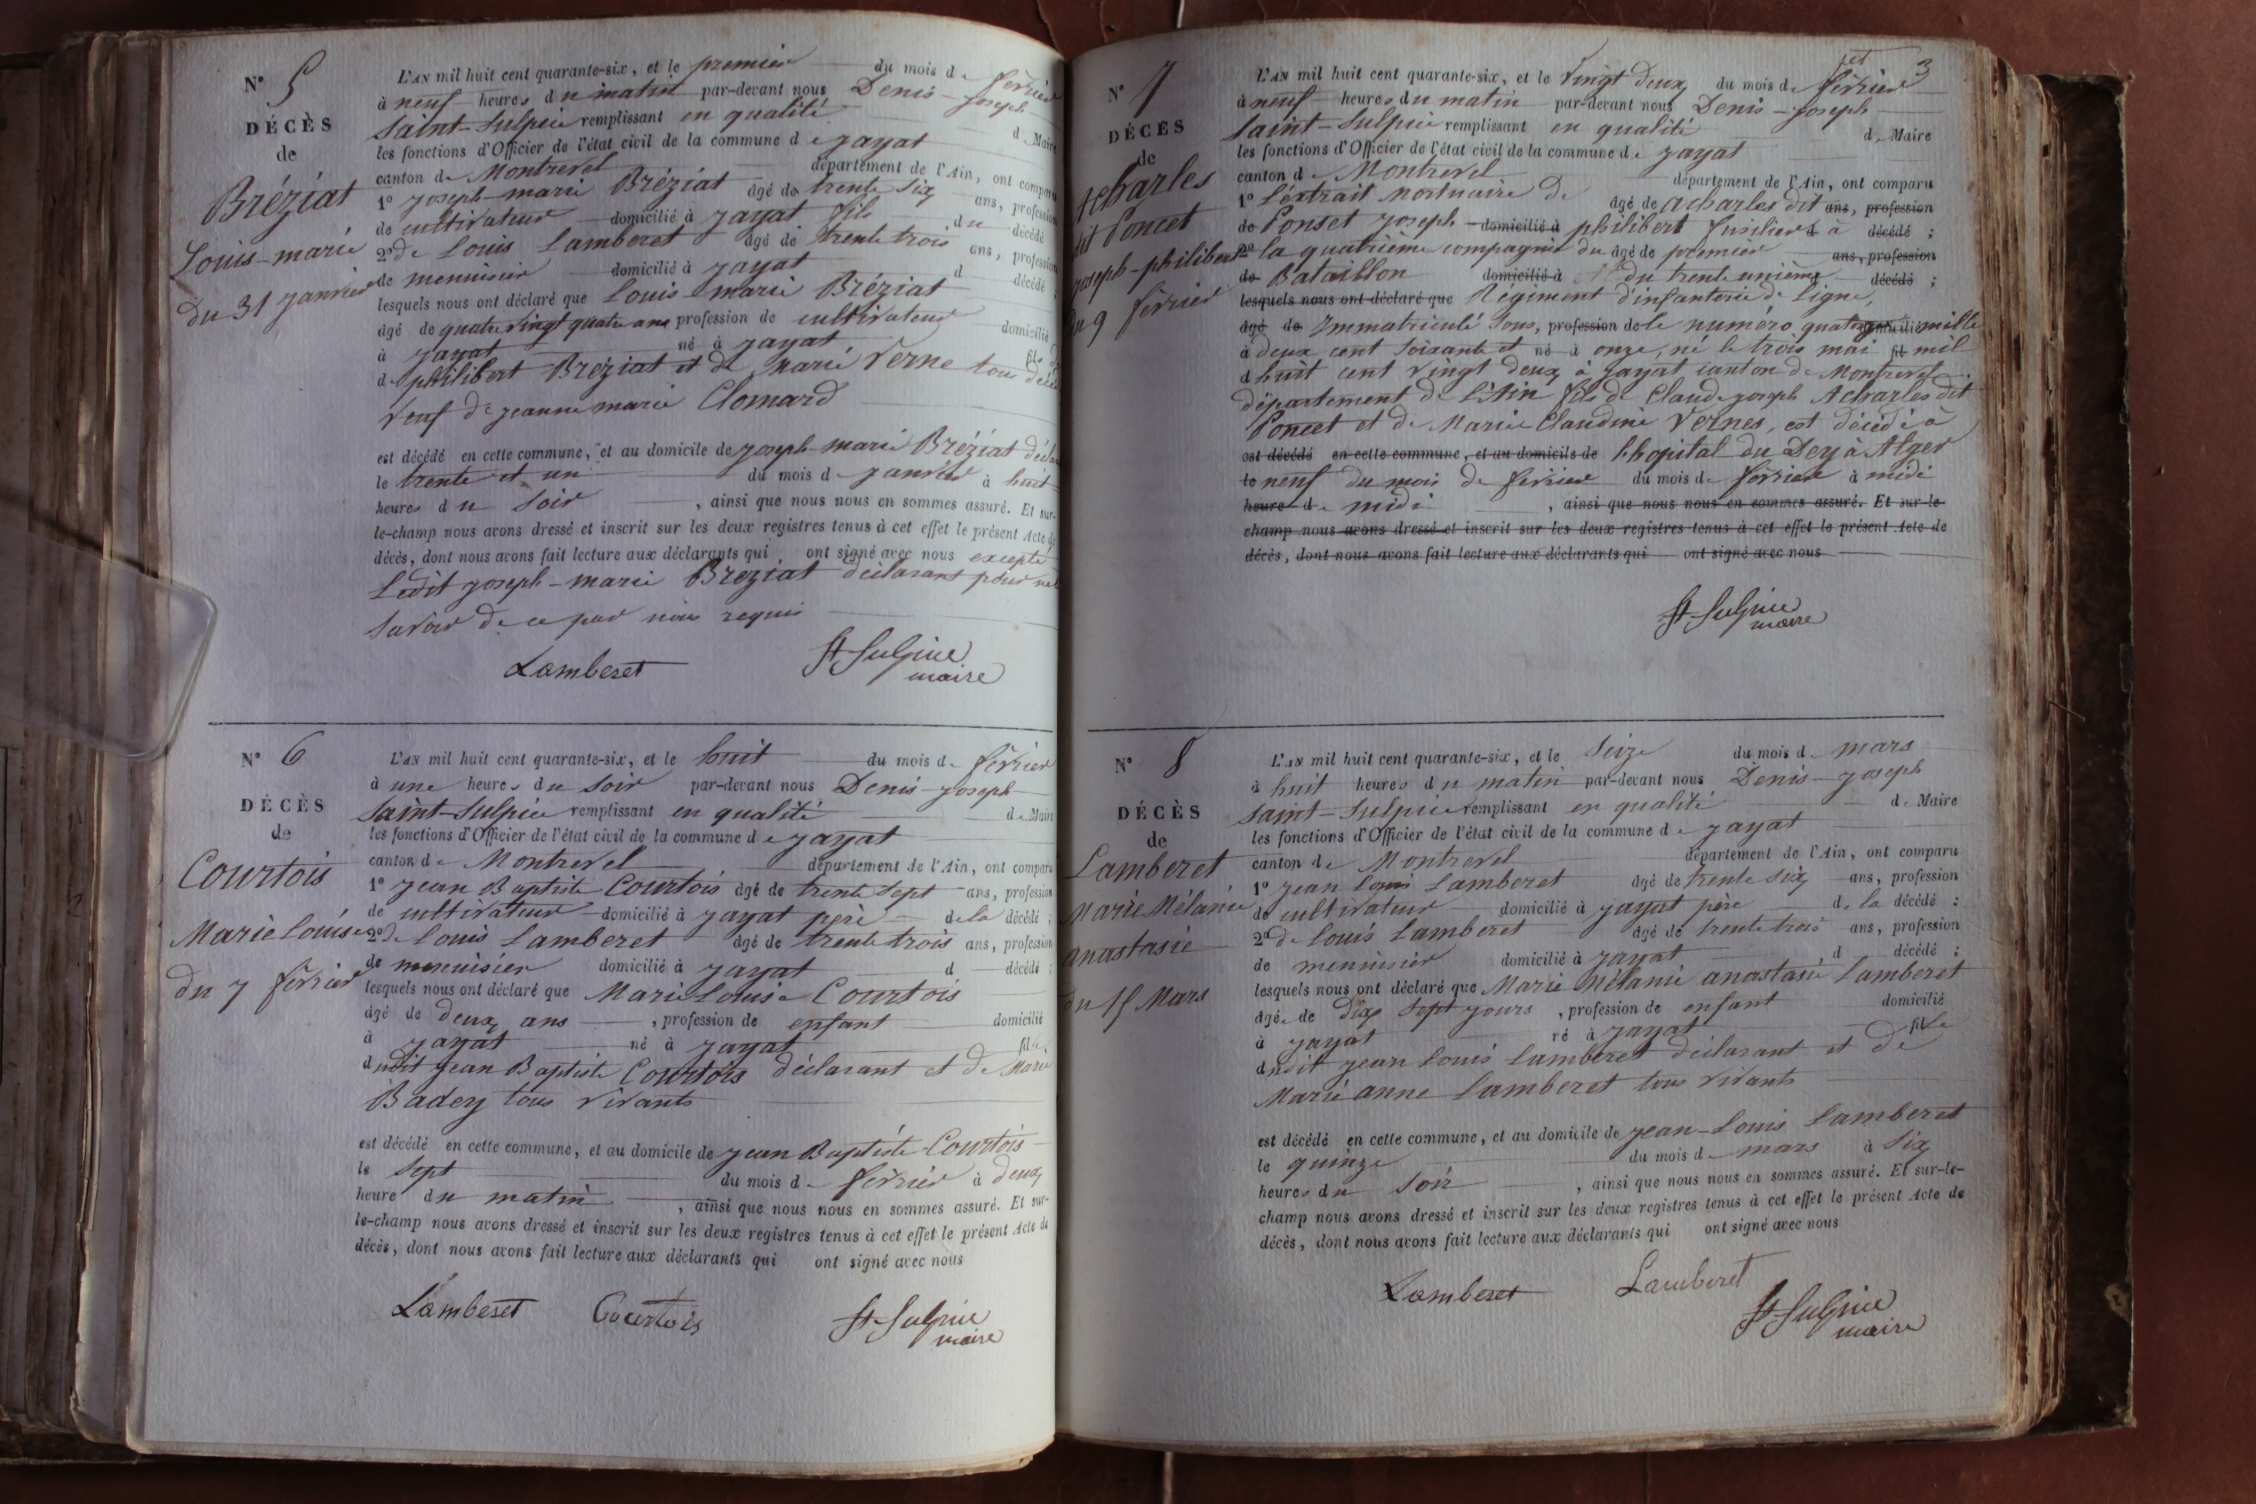 N° 5
DÉCÈS
de
Bréziat
Louis-marie
du 31 janvier
L'AN mil huit cent quarante-six, et le premier du mois de février
à neuf heures du matin par-devant nous Denis-joseph
Saint-Sulpice remplissant en qualité de Maire
les fonctions d'Officier de l'état civil de la commune de jayat
canton de Montrevel département de l'Ain, ont comparu
1° joseph-marie Bréziat âgé de trente six ans, profession
de cultivateur domicilié à jayat fils du décédé
2° de Louis Lamberet âgé de trente trois ans, profession
de menuisier domicilié à jayat d décédé ;
lesquels nous ont déclaré que Louis-marie Bréziat
âgé de quatre vingt quatre ans profession de cultivateur domicilié
à jayat né à jayat fils
de philibert Bréziat et de Marie Verne tous
veuf de jeanne marie Clomard
est décédé en cette commune, et au domicile de joseph-marie Bréziat
le trente et un du mois de janvier à huit
heures du soir, ainsi que nous nous en sommes assuré. Et sur-
le-champ nous avons dressé et inscrit sur les deux registres tenus à cet effet le présent Acte de
décès, dont nous avons fait lecture aux déclarants qui ont signé avec nous excepté
Ledit joseph-marie Breziat déclarant pour ne
savoir de ce par nous requis
Lamberet St Sulpice
maire
N° 6
DÉCÈS
de
Courtois
Marie Louise
du 7 février
L'AN mil huit cent quarante-six, et le huit du mois de février
à une heures du soir par-devant nous Denis-joseph
Saint-Sulpice remplissant en qualité de Maire
les fonctions d'Officier de l'état civil de la commune de jayat
canton de Montrevel département de l'Ain, ont comparu
1° jean Baptiste Courtois âgé de trente sept ans, profession
de cultivateur domicilié à jayat père de la décédé ;
2° de Louis Lamberet âgé de trente trois ans, profession
de menuisier domicilié à jayat d décédé ;
lesquels nous ont déclaré que Marie Louise Courtois
âgé de deux ans, profession de enfant domicilié
à jayat né à jayat fille
dudit jean Baptiste Courtois déclarant et de Marie
Badey tous vivants
est décédé en cette commune, et au domicile de jean Baptiste Courtois
le sept du mois de février à deux
heure du matin, ainsi que nous nous en sommes assuré. Et sur-
le-champ nous avons dressé et inscrit sur les deux registres tenus à cet effet le présent Acte de
décès, dont nous avons fait lecture aux déclarants qui ont signé avec nous
Lamberet Courtois St Sulpice
maire
3
N° 7
DÉCÈS
de
Acharles
dit Poncet
joseph-philibert
du 9 février
L'AN mil huit cent quarante-six, et le vingt deux du mois de février
à neuf heures du matin par-devant nous Denis-joseph
Saint-Sulpice remplissant en qualité de Maire
les fonctions d'Officier de l'état civil de la commune de jayat
canton de Montrevel département de l'Ain, ont comparu
1° L'extrait mortuaire de âgé de Acharles dit ans, profession
de Ponset joseph domicilié à philibert fusilier à décédé ;
2° la quatrième compagnie du âgé de premier ans, profession
de Bataillon domicilié à du trente unième décédé ;
lesquels nous ont déclaré que Régiment d'infanterie de Ligne,
âgé de Immatriculé sous, profession de le numéro quatorze domicilié mille
à deux cent soixante et né à onze, né le trois mai fil mil
d huit cent vingt deux à Jayat canton de Montrevel
département de L'Ain fils de Claude joseph Acharles dit
Poncet et de Marie Claudine Vernes, est décédé à
est décédé en cette commune, et au domicile de l'hopital du Dey à Alger
le neuf du mois de février du mois de février à midi
heure de midi, ainsi que nous nous en sommes assuré. Et sur-le-
champ nous avons dressé et inscrit sur les deux registres tenus à cet effet le présent Acte de
décès, dont nous avons fait lecture aux déclarants qui ont signé avec nous
St Sulpice
maire
N° 8
DÉCÈS
de
Lamberet
Marie Mélanie
anastasie
du 15 Mars
L'AN mil huit cent quarante-six, et le seize du mois de mars
à huit heures du matin par-devant nous Denis-joseph
saint-Sulpice remplissant en qualité de Maire
les fonctions d'Officier de l'état civil de la commune de jayat
canton de Montrevel département de l'Ain, ont comparu
1° jean Louis Lamberet âgé de trente six ans, profession
de cultivateur domicilié à jayat père de la décédé :
2° de Louis Lamberet âgé de trente trois ans, profession
de menuisier domicilié à jayat, d décédé ;
lesquels nous ont déclaré que Marie Mélanie anastasie Lamberet
âgé de dix sept jours, profession de enfant domicilié
à jayat né à jayat fille
dudit jean Louis Lamberet déclarant et de
Marie anne Lamberet tous vivants
est décédé en cette commune, et au domicile de jean-Louis Lamberet
le quinze du mois de mars à six
heures du soir, ainsi que nous nous en sommes assuré. Et sur-le-
champ nous avons dressé et inscrit sur les deux registres tenus à cet effet le présent Acte de
décès, dont nous avons fait lecture aux déclarants qui ont signé avec nous
Lamberet Lamberet St Sulpice
maire